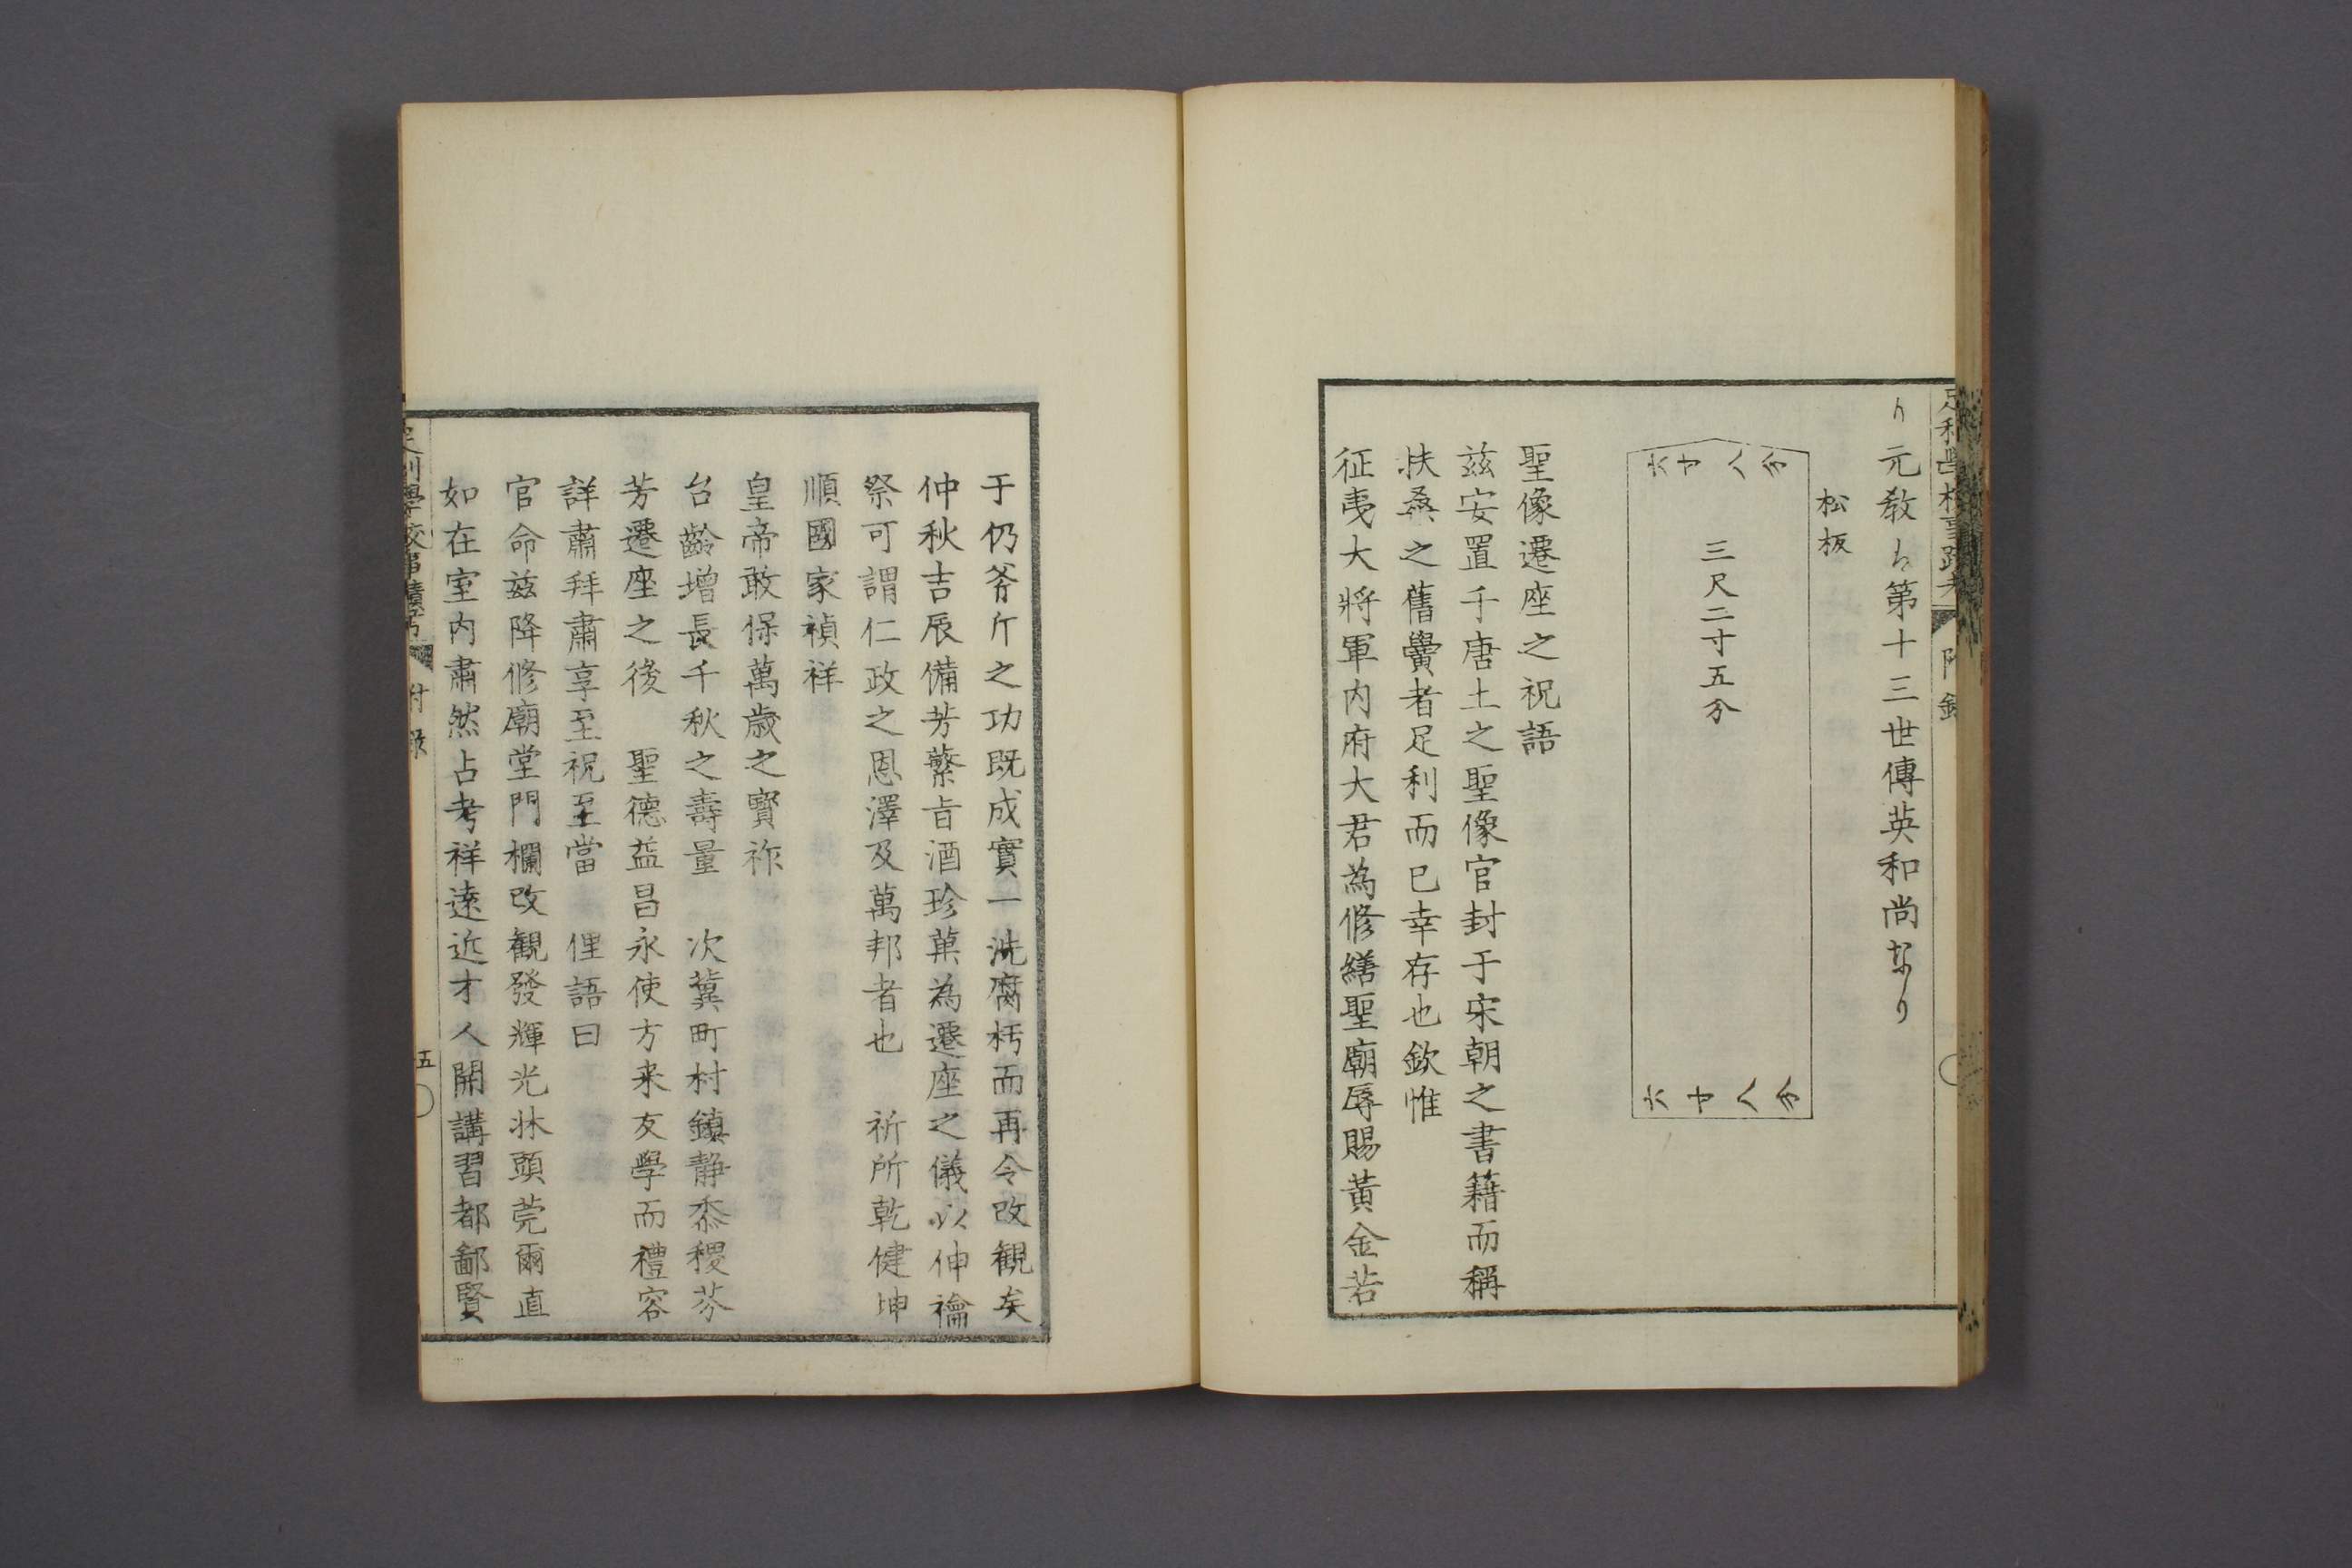 足利學校事蹟考 附錄
り元教ハ第十三世傳英和尚なり
松板
三尺二寸五分
聖像遷座之祝語
茲安置千唐土之聖像官封于宋朝之書籍而稱
扶桑之舊黌者足利而已幸存也欽惟
征夷大將軍内府大君為修繕聖廟辱賜黃金若
于仍斧斤之功既成實一洗腐朽而再令改観矣
仲秋吉辰備芳蘩旨酒珍菓為遷座之儀以伸禴
祭可謂仁政之恩澤及萬邦者也　祈所乾健坤
順國家禎祥
皇帝敢保萬歳之寳祚
台齡增長千秋之壽量　次冀町村鎮静黍稷芬
芳遷座之後　聖德益昌永使方来友學而禮容
詳肅拜肅享至祝至當　俚語曰
官命茲降修廟堂門欄改観發輝光牀頭莞爾直
如在室内肅然占考祥遠近才人開講習都鄙賢
足利學校事蹟考 附錄 五